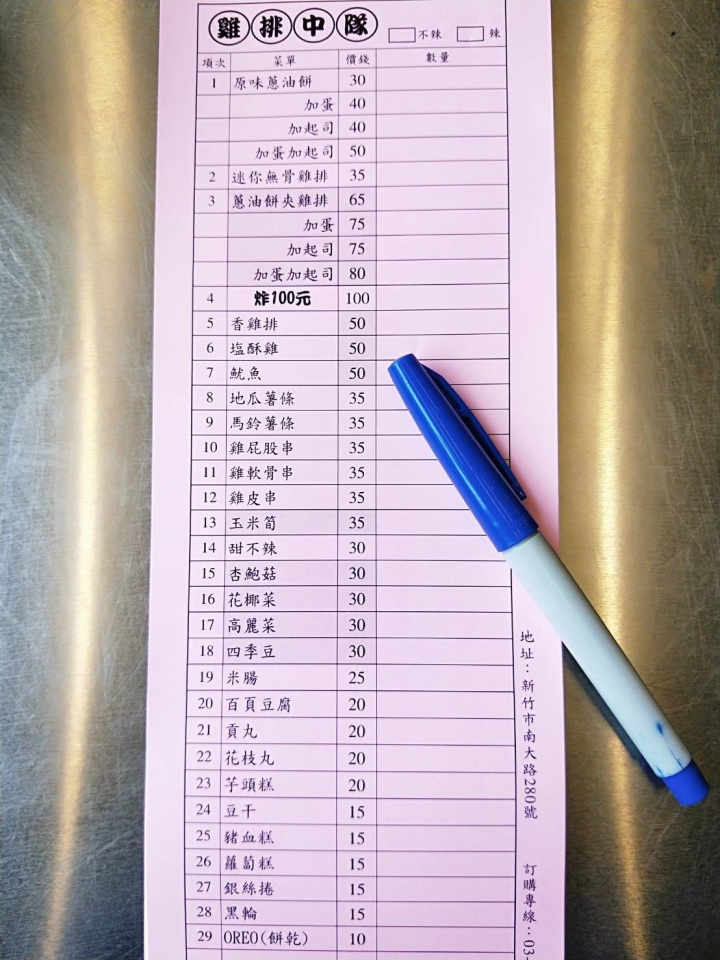 雞排中隊 不辣 辣
項次 菜單 價錢 數量
1 原味蔥油餅 30
加蛋 40
加起司 40
加蛋加起司 50
2 迷你無骨雞排 35
3 蔥油餅夾雞排 65
加蛋 75
加起司 75
加蛋加起司 80
4 炸100元 100
5 香雞排 50
6 塩酥雞 50
7 魷魚 50
8 地瓜薯條 35
9 馬鈴薯條 35
10 雞屁股串 35
11 雞軟骨串 35
12 雞皮串 35
13 玉米筍 35
14 甜不辣 30
15 杏鮑菇 30
16 花椰菜 30
17 高麗菜 30
18 四季豆 30
19 米腸 25
20 百頁豆腐 20
21 貢丸 20
22 花枝丸 20
23 芋頭糕 20
24 豆干 15
25 豬血糕 15
26 蘿蔔糕 15
27 銀絲捲 15
28 黑輪 15
29 OREO(餅乾) 10
地址：新竹市南大路280號 訂購專線：03-